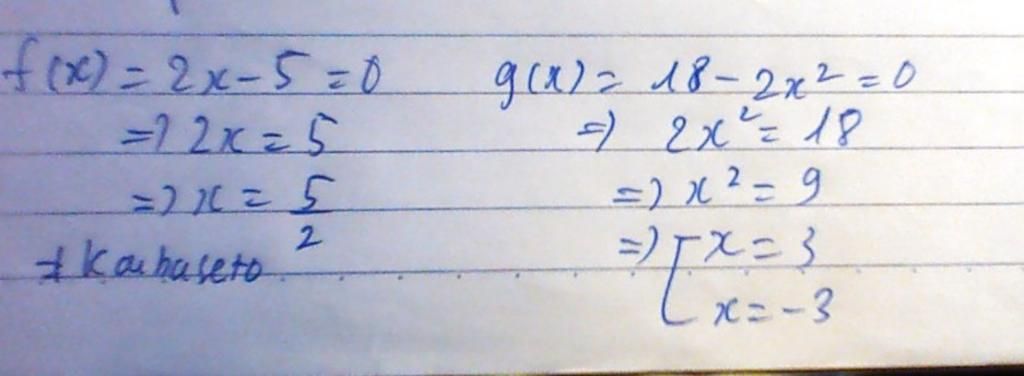 f(x) = 2x - 5 = 0
=> 2x = 5
=> x = 5/2
g(x) = 18 - 2x² = 0
=> 2x² = 18
=> x² = 9
=> [ x = 3
x = -3